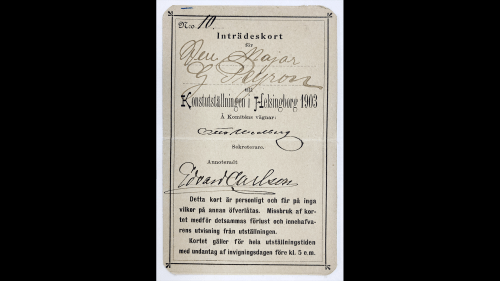 N:o 10.
Inträdeskort
för
Herr Major
G Peyron
till
Konstutställningen i Helsingborg 1903
Å Komiténs vägnar:
Sekreterare.
Annoteradt
Edvard Carlson
Detta kort är personligt och får på inga
vilkor på annan öfverlåtas. Missbruk af kor-
tet medför detsammas förlust och innehafva-
rens utvisning från utställningen.
Kortet gäller för hela utställningstiden
med undantag af invigningsdagen före kl. 5 e.m.